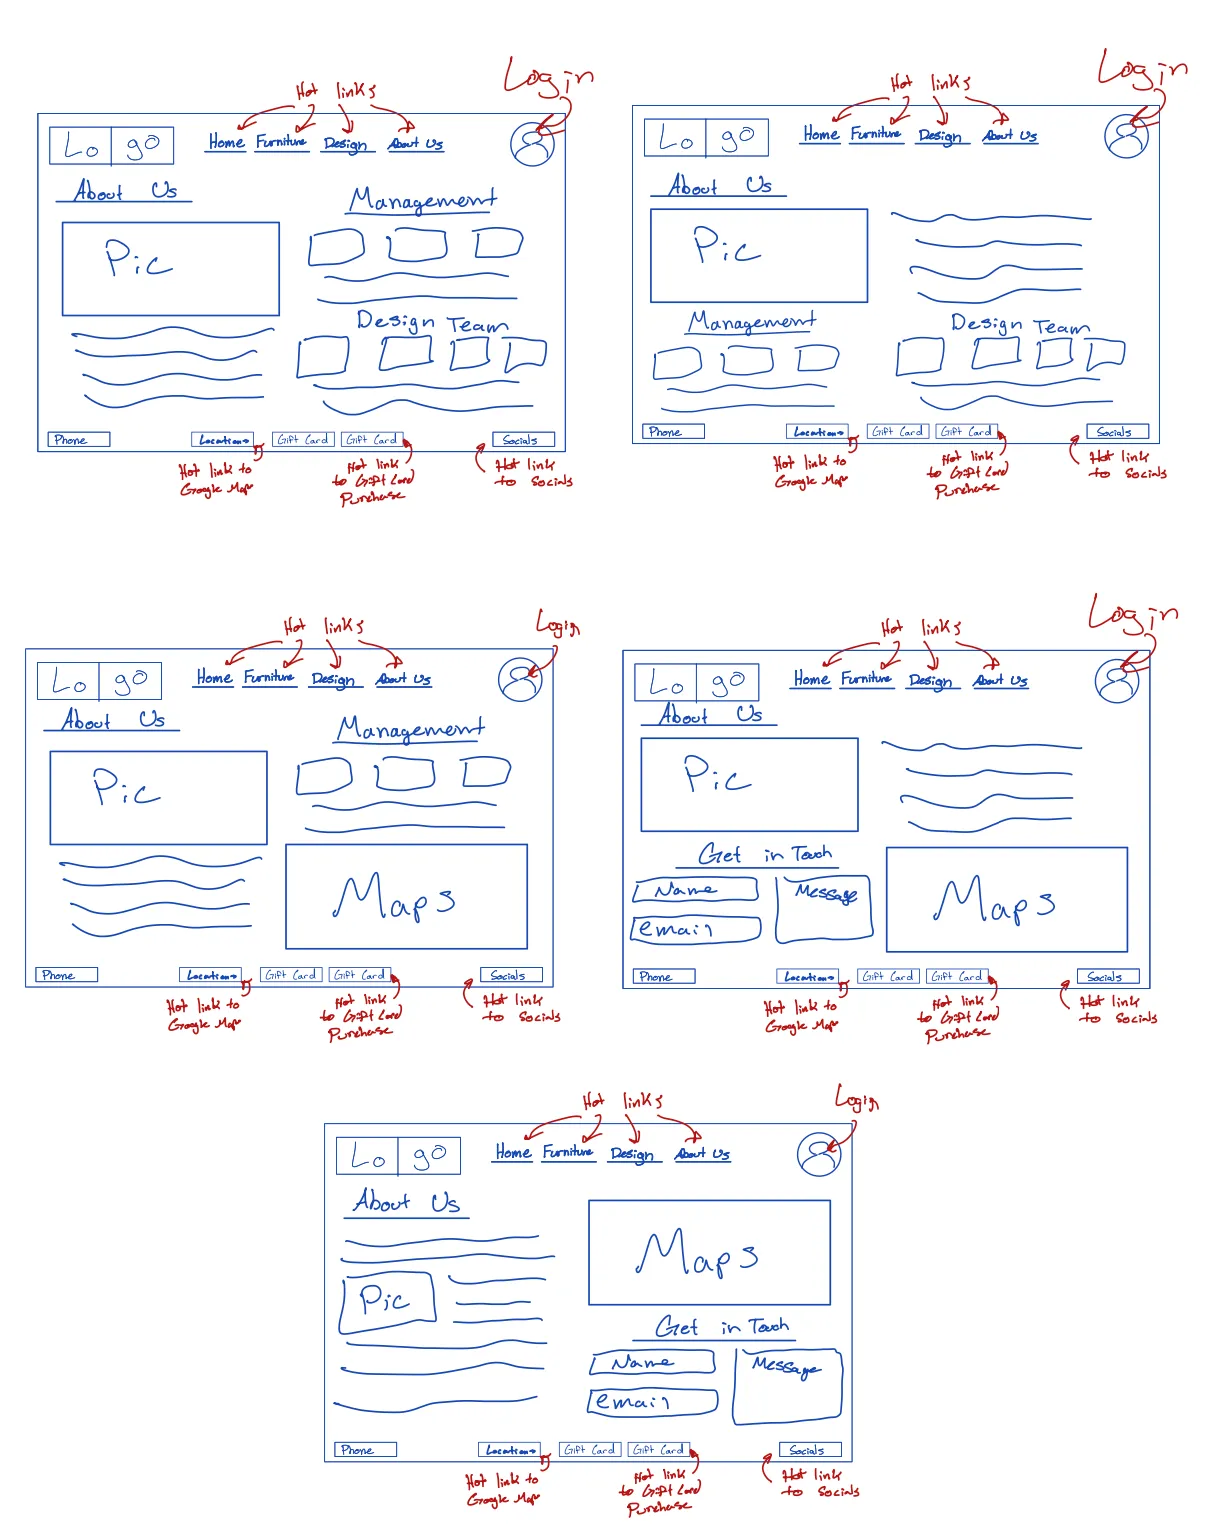 Login
Hot links
Lo go
Home Furniture Design About Us
About Us
Management
Pic
Design Team
Phone
Locations
Gift Card
Gift Card
Socials
Hot link to
Google Map
Hot link
to Gift Card
Purchase
Hot link
to Socials
Login
Hot links
Lo go
Home Furniture Design About Us
About Us
Pic
Management
Design Team
Phone
Locations
Gift Card
Gift Card
Socials
Hot link to
Google Map
Hot link
to Gift Card
Purchase
Hot link
to Socials
Login
Hot links
Lo go
Home Furniture Design About Us
About Us
Management
Pic
Maps
Phone
Locations
Gift Card
Gift Card
Socials
Hot link to
Google Map
Hot link
to Gift Card
Purchase
Hot link
to Socials
Login
Hot links
Lo go
Home Furniture Design About Us
About Us
Pic
Get in Touch
Name
Message
email
Maps
Phone
Locations
Gift Card
Gift Card
Socials
Hot link to
Google Map
Hot link
to Gift Card
Purchase
Hot link
to Socials
Login
Hot links
Lo go
Home Furniture Design About Us
About Us
Maps
Pic
Get in Touch
Name
Message
email
Phone
Locations
Gift Card
Gift Card
Socials
Hot link to
Google Map
Hot link
to Gift Card
Purchase
Hot link
to Socials